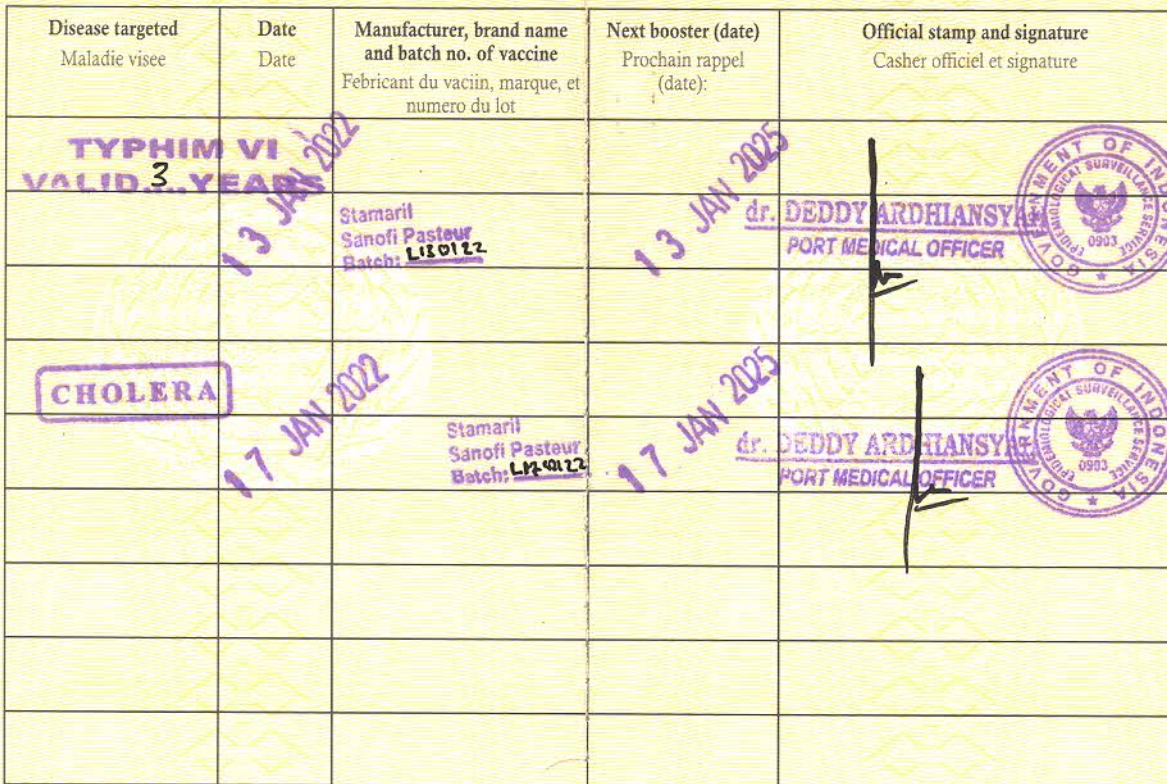 Disease targeted
Maladie visee
Date
Date
Manufacturer, brand name
and batch no. of vaccine
Febricant du vaciin, marque, et
numero du lot
Next booster (date)
Prochain rappel
(date):
Official stamp and signature
Casher officiel et signature
TYPHIM VI
VALID 3 YEARS
13 JAN 2022
Stamaril
Sanofi Pasteur
Batch:
13 JAN 2025
dr. DEDDY ARDHIANSYAH
PORT MEDICAL OFFICER
GOVERNMENT OF INDONESIA
EPIDEMIOLOGICAL SURVEILLANCE SERVICE
0903
CHOLERA
17 JAN 2022
Stamaril
Sanofi Pasteur
Batch:
17 JAN 2025
dr. DEDDY ARDHIANSYAH
PORT MEDICAL OFFICER
GOVERNMENT OF INDONESIA
EPIDEMIOLOGICAL SURVEILLANCE SERVICE
0903